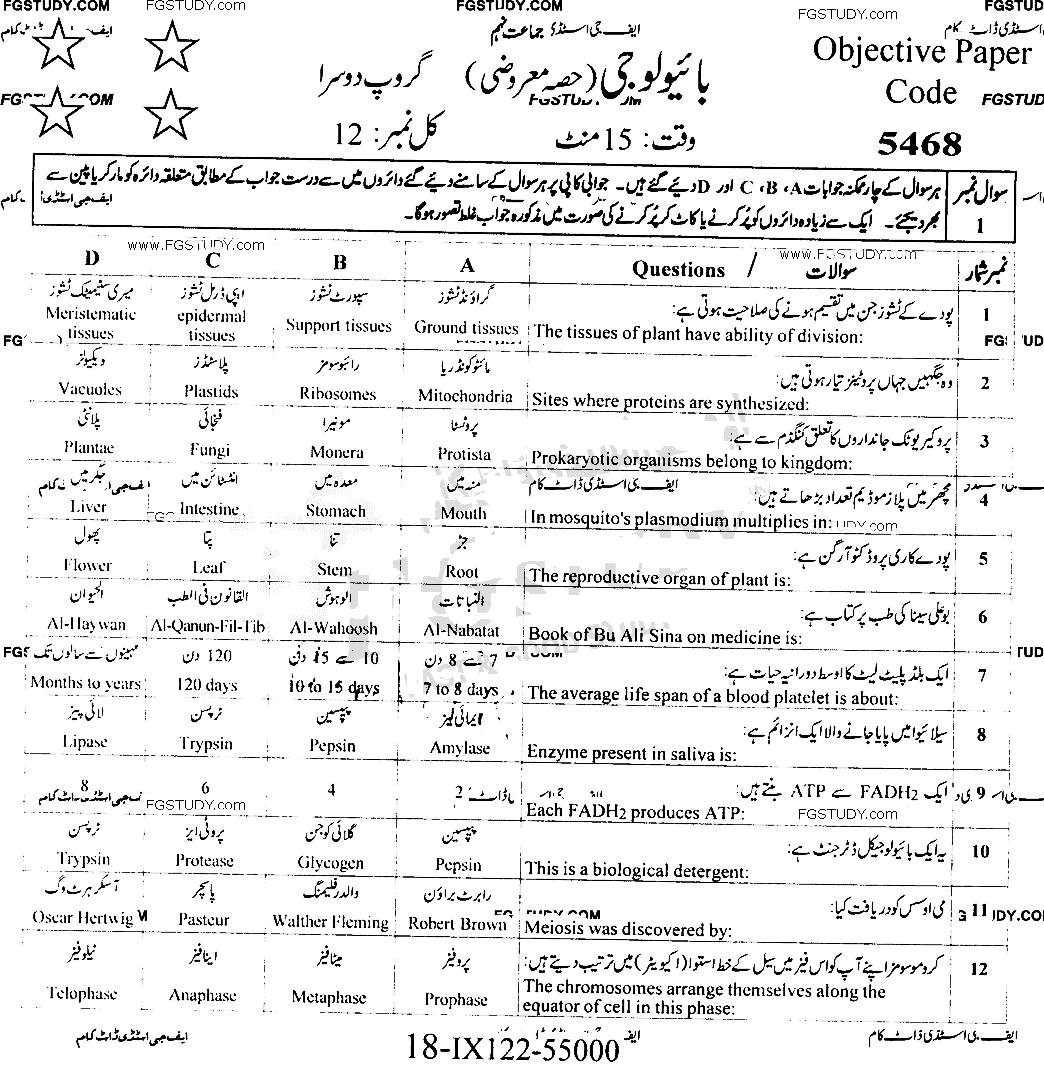 FGSTUDY.COM FGSTUDY.COM FGSTUDY.COM FGSTUDY.COM FGSTUD
ایف جی اسٹڈی جماعت نہم
بائیولوجی (حصہ معروضی) گروپ دوسرا
Objective Paper
Code
FGSTUD
5468
وقت: 15 منٹ کل نمبر: 12
سوال نمبر 1
ہر سوال کے چار ممکنہ جوابات A، B، C اور D دیئے گئے ہیں۔ جوابی کاپی پر ہر سوال کے سامنے دیئے گئے دائروں میں سے درست جواب کے مطابق متعلقہ دائرہ کو مارکر یا پین سے
بھر دیجئے۔ ایک سے زیادہ دائروں کو پُر کرنے یا کاٹ کر پُر کرنے کی صورت میں مذکورہ جواب غلط تصور ہوگا۔
www.FGSTUDY.com www.FGSTUDY.com
D C B A Questions / سوالات نمبر شمار
میری سٹیمیٹک ٹشوز اپی ڈرمل ٹشوز سپورٹ ٹشوز گراؤنڈ ٹشوز پودے کے ٹشوز جن میں تقسیم ہونے کی صلاحیت ہوتی ہے: 1
Meristematic tissues epidermal tissues Support tissues Ground tissues The tissues of plant have ability of division:
ویکیولز پلاسٹڈز رائبوسومز مائٹوکونڈریا وہ جگہیں جہاں پروٹینز تیار ہوتی ہیں: 2
Vacuoles Plastids Ribosomes Mitochondria Sites where proteins are synthesized:
پلانٹی فنجائی مونیرا پروٹسٹا پروکیریوٹک جانداروں کا تعلق کنگڈم سے ہے: 3
Plantae Fungi Monera Protista Prokaryotic organisms belong to kingdom:
جگر میں انٹسٹائن میں معدہ میں منہ میں مچھر میں پلازموڈیم تعداد بڑھاتے ہیں: 4
Liver Intestine Stomach Mouth In mosquito's plasmodium multiplies in:
پھول پتا تنا جڑ پودے کا ری پروڈکٹو آرگن ہے: 5
Flower Leaf Stem Root The reproductive organ of plant is:
الحیوان القانون فی الطب الوہوش النباتات بو علی سینا کی طب پر کتاب ہے: 6
Al-Haywan Al-Qanun-Fil-Tib Al-Wahoosh Al-Nabatat Book of Bu Ali Sina on medicine is:
مہینوں سے سالوں تک 120 دن 10 سے 15 دن 7 سے 8 دن ایک بلڈ پلیٹ لیٹ کا اوسط دورانیہ حیات ہے: 7
Months to years 120 days 10 to 15 days 7 to 8 days The average life span of a blood platelet is about:
لائی پیز ٹرپسن پیپسین ایمائی لیز سلائیوا میں پایا جانے والا ایک انزائم ہے: 8
Lipase Trypsin Pepsin Amylase Enzyme present in saliva is:
8 6 4 2 ایک FADH2 سے ATP بنتے ہیں: 9
FGSTUDY.com Each FADH2 produces ATP: FGSTUDY.com
ٹرپسن پروٹی ایز گلائی کوجن پیپسین یہ ایک بائیولوجیکل ڈٹرجنٹ ہے: 10
Trypsin Protease Glycogen Pepsin This is a biological detergent:
آسکر ہرٹ وگ پاسچر والدر فلیمنگ رابرٹ براؤن می اوسس کو دریافت کیا: 11
Oscar Hertwig Pasteur Walther Fleming Robert Brown Meiosis was discovered by:
ٹیلوفیز اینافیز میٹافیز پروفیز کروموسومز اپنے آپ کو اس فیز میں سیل کے خط استوا (اکیویٹر) میں ترتیب دیتے ہیں: 12
Telophase Anaphase Metaphase Prophase The chromosomes arrange themselves along the
equator of cell in this phase:
ایف جی اسٹڈی ڈاٹ کام ایف جی اسٹڈی ڈاٹ کام
18-IX122-55000